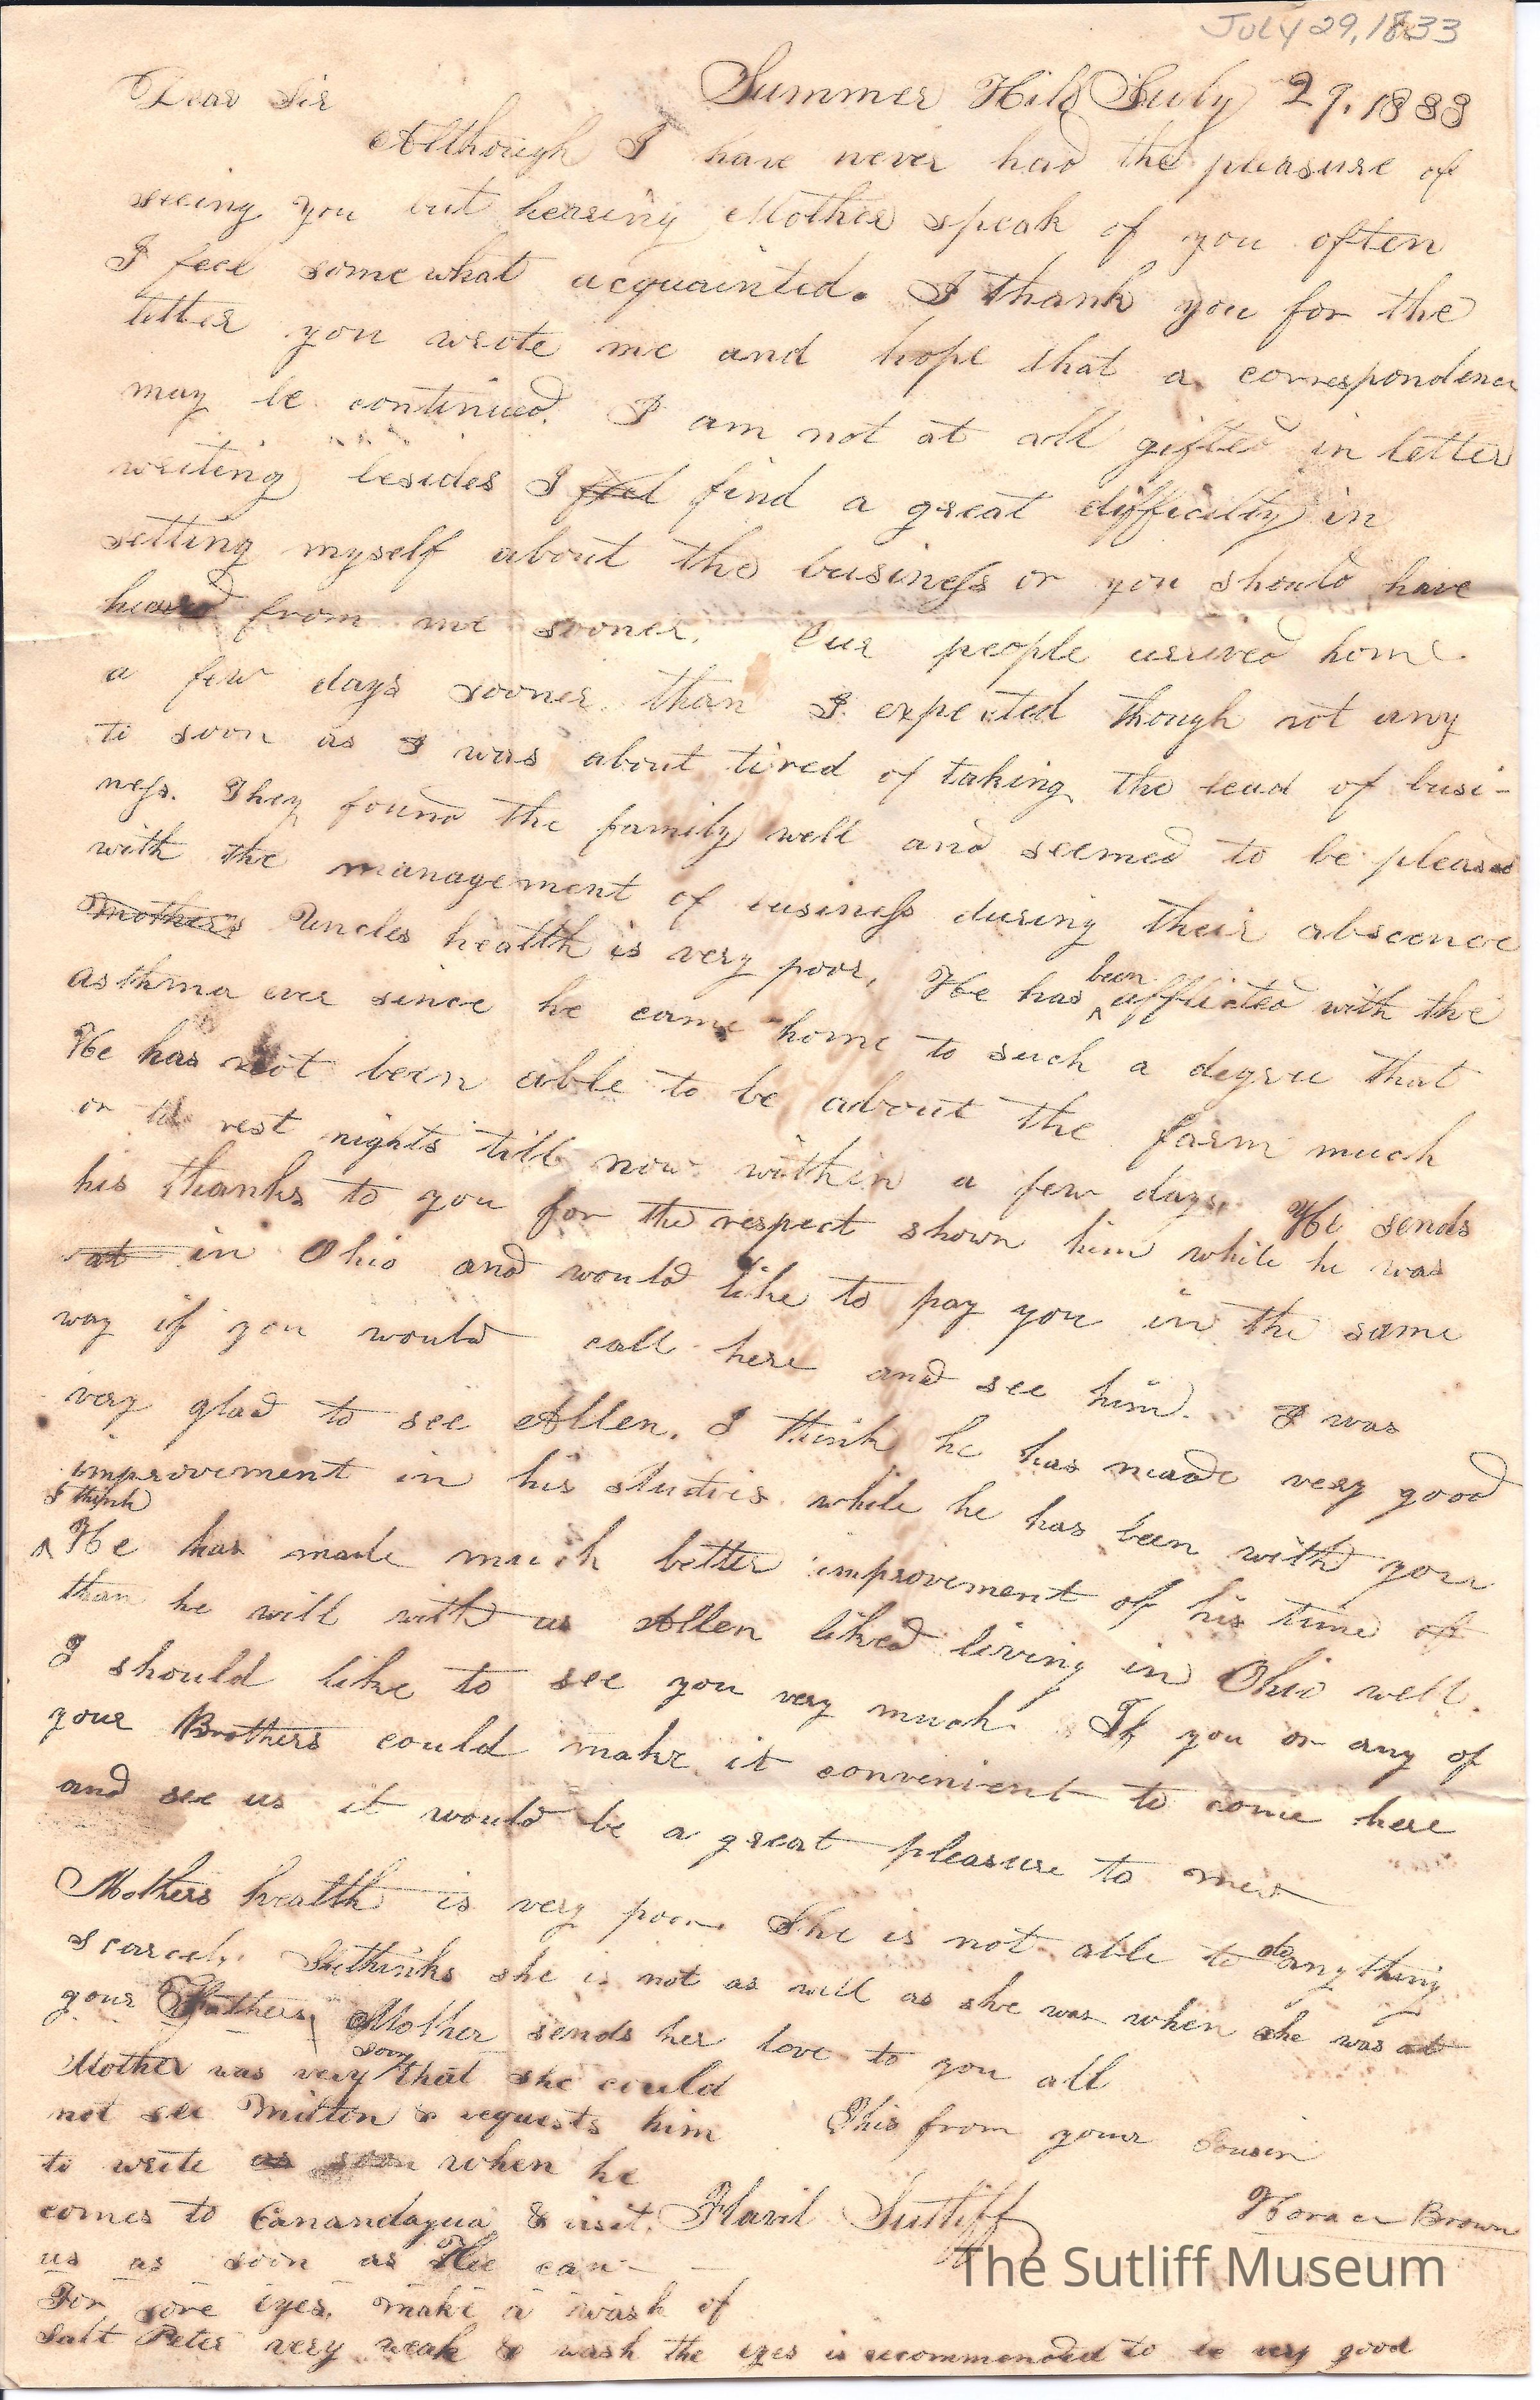 July 29, 1833
Summer Hill July 29. 1833
Dear Sir
Although I have never had the pleasure of
seeing you but hearing Mother speak of you often
I feel somewhat acquainted. I thank you for the
letter you wrote me and hope that a correspondence
may be continued. I am not at all gifted in letter
writing besides I feel find a great difficulty in
setting myself about the business or you should have
heard from me sooner. Our people arrived home
a few days sooner than I expected though not any
to soon as I was about tired of taking the lead of busi-
ness. They found the family well and seemed to be pleased
with the management of business during their abscence
Mother's Uncles health is very poor, He has been afflicted with the
asthma ever since he came home to such a degree that
He has not been able to be about the farm much
or rest nights till now within a few days, He sends
his thanks to you for the respect shown him while he was
at in Ohio and would like to pay you in the same
way if you would call here and see him. I was
very glad to see Allen. I think he has made very good
improvement in his studies while he has been with you
I think
He has made much better improvement of his time of
than he will with us Allen liked living in Ohio well.
I should like to see you very much. If you or any of
your Brothers could make it convenient to come here
and see us it would be a great pleasure to me
Mothers health is very poor She is not able to do anything
scarcely. She thinks she is not as well as she was when she was at
your Fathers, Mother sends her love to you all
Mother was very sorry that she could
not see Milten & requests him
to write as soon when he
comes to Canandagua & visit
us as soon as He can
This from your Cousin
Horace Brown
Flavil Sutliff
For sore eyes, make a wash of
Salt Peter very weak & wash the eyes is recommended to be very good
The Sutliff Museum